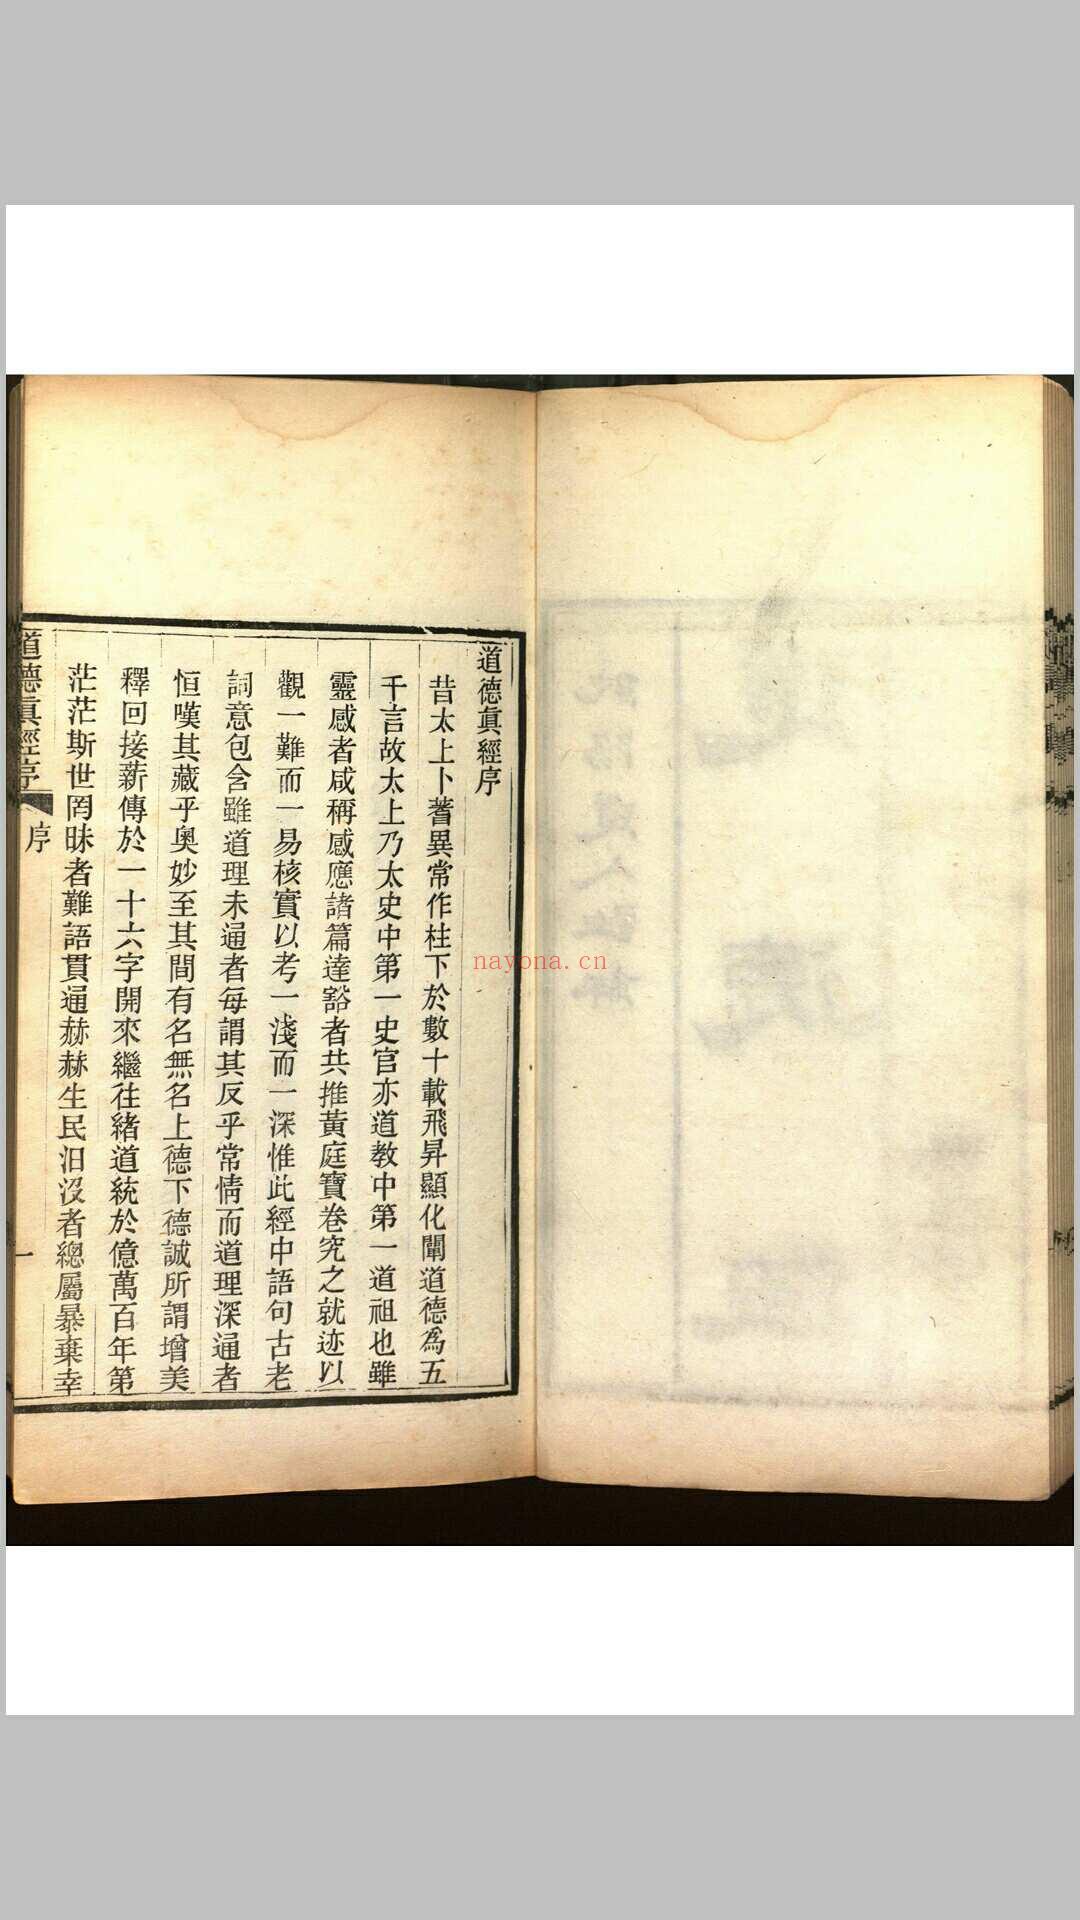 道德眞經序
昔太上卜蓍異常作柱下於數十載飛昇顯化闡道德爲五
千言故太上乃太史中第一史官亦道教中第一道祖也雖
靈感者咸稱感應諸篇達豁者共推黃庭寶卷究之就迹以
觀一難而一易核實以考一淺而一深惟此經中語句古老
詞意包含雖道理未通者每謂其反乎常情而道理深通者
恒嘆其藏乎奧妙至其間有名無名上德下德誠所謂增美
釋回接薪傳於一十六字開來繼往緒道統於億萬百年第
茫茫斯世罔昧者難語貫通赫赫生民汩沒者總屬暴棄幸
道德眞經序
序
一
nayona.cn